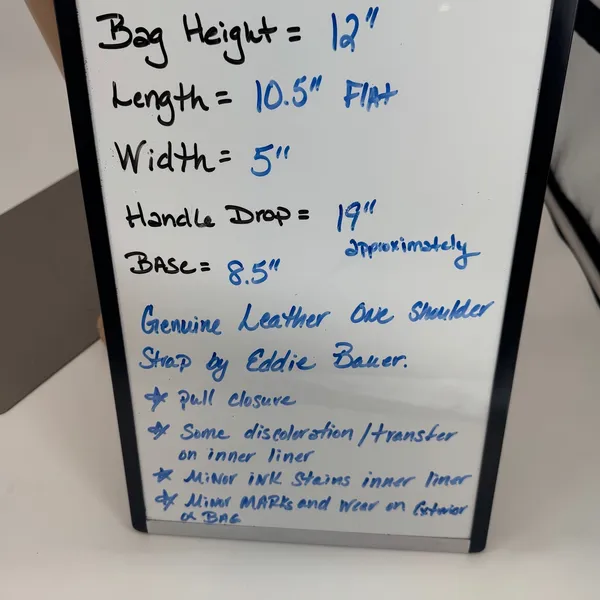 Bag Height = 12"
Length = 10.5" Flat
Width = 5"
Handle Drop = 19"
approximately
BASE = 8.5"
Genuine Leather One Shoulder
Strap by Eddie Bauer.
☆ pull closure
☆ Some discoloration/transfer
on inner liner
☆ Minor ink stains inner liner
☆ Minor MARKs and wear on Exterior
of BAG